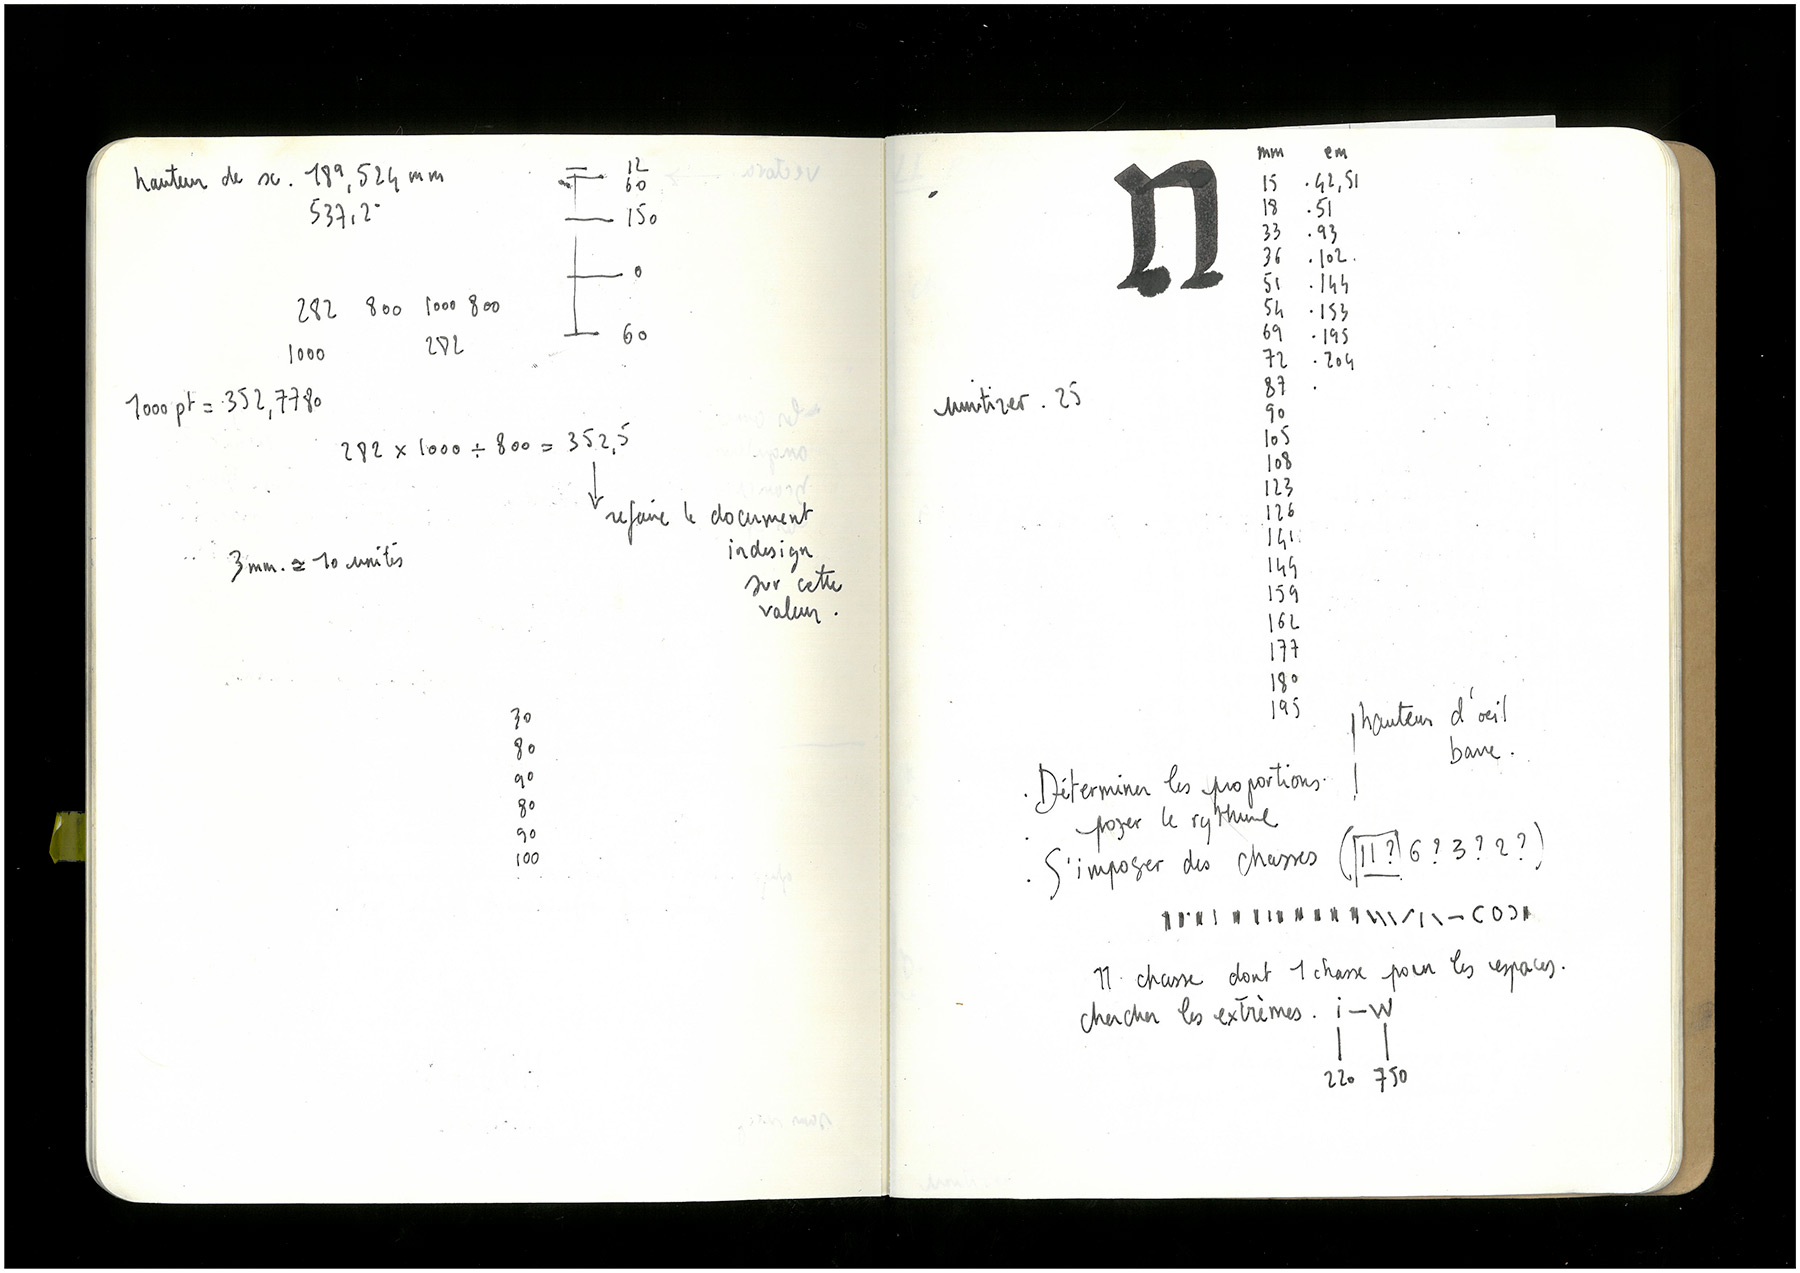 hauteur de x. 189,524 mm
537,2
12
60
150
0
60
282 800 1000 800
1000 282
1000 pt = 352,7780
282 x 1000 ÷ 800 = 352,5
refaire le document
indesign
sur cette
valeur.
3 mm. ≃ 10 unités
30
80
90
80
90
100
n
mm em
15 .42,51
18 .51
33 .93
36 .102.
51 .144
54 .153
69 .195
72 .204
87 .
90
105
108
123
126
141
144
159
162
177
180
195
unitizer. 25
hauteur d'oeil
barre.
. Déterminer les proportions.
. poser le rythme
. S'imposer des chasses (11? 6? 3? 2?)
11 chasse dont 1 chasse pour les espaces.
chercher les extrèmes. i – W
220 750